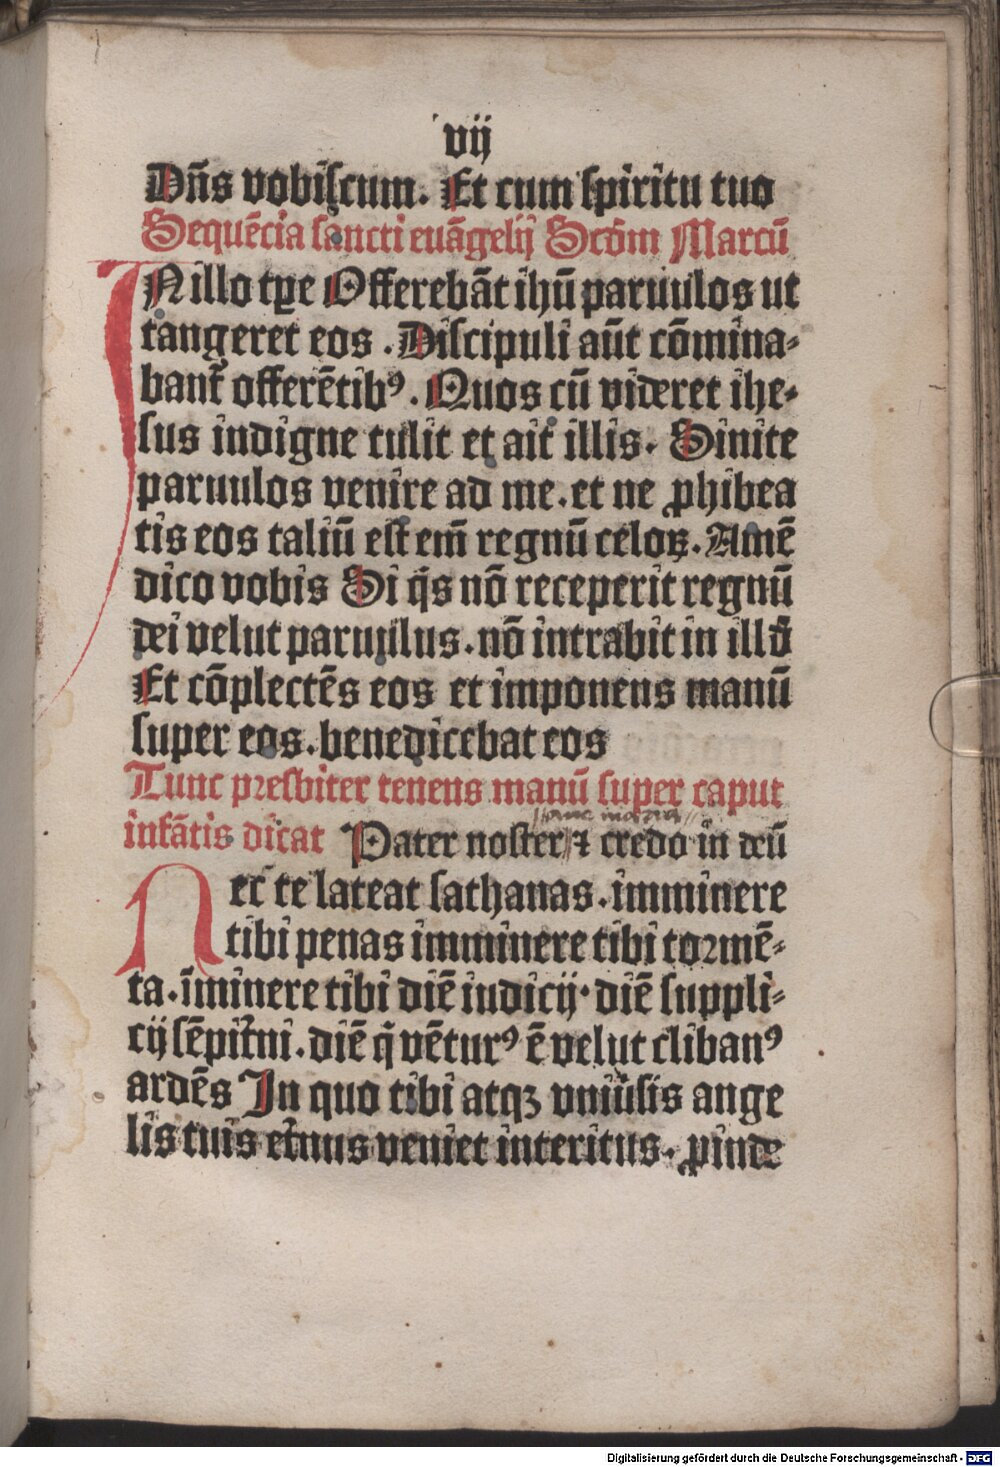 vij
Dñs vobiſcum. Et cum ſpiritu tuo
Sequẽcia ſancti euãgelij Scḋm Marcũ
IN illo tꝑe Offerebãt ihũ paruulos ut
tangeret eos. Diſcipuli aũt cõmina-
bant᷑ offerẽtibꝰ. Quos cũ videret ihe-
ſus indigne tulit et ait illis. Sinite
paruulos venire ad me. et ne ꝓhibea
tis eos taliũ eſt em̃ regnũ celoꝝ. Amẽ
dico vobis Si q̇s nõ receperit regnũ
dei velut paruulus. nõ intrabit in illḋ
Et cõplectẽs eos et imponens manũ
ſuper eos. benedicebat eos
Tunc preſbiter tenens manũ ſuper caput
ave maria
infãtis dicat Pater noſter ⁊ credo in deũ
Nec te lateat ſathanas. imminere
tibi penas imminere tibi tormẽ-
ta. ĩminere tibi diẽ iudicij. diẽ ſuppli-
cij ſẽpit̾ni. diẽ q̇ vẽturꝰ ẽ velut clibanꝰ
ardẽs In quo tibi atqꝫ vniũſis ange
lis tuis et̾nus veniet interitus. ꝓinde
Digitalisierung gefördert durch die Deutsche Forschungsgemeinschaft - DFG